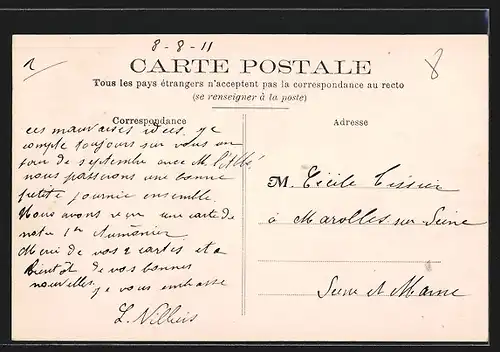 8-8-11
CARTE POSTALE
Tous les pays étrangers n'acceptent pas la correspondance au recto
(se renseigner à la poste)
Correspondance
ces mauvaises idées. je
compte toujours sur vous un
jour de septembre avec M. l'Abbé
nous passerons une bonne
petite journée ensemble.
Nous avons reçu une carte de
notre 1er Aumônier
Merci de vos 2 cartes et a
bientôt de vos bonnes
nouvelles. je vous embrasse
L. Villiers
Adresse
M. Cécile Tissier
à Marolles sur Seine
Seine et Marne
8